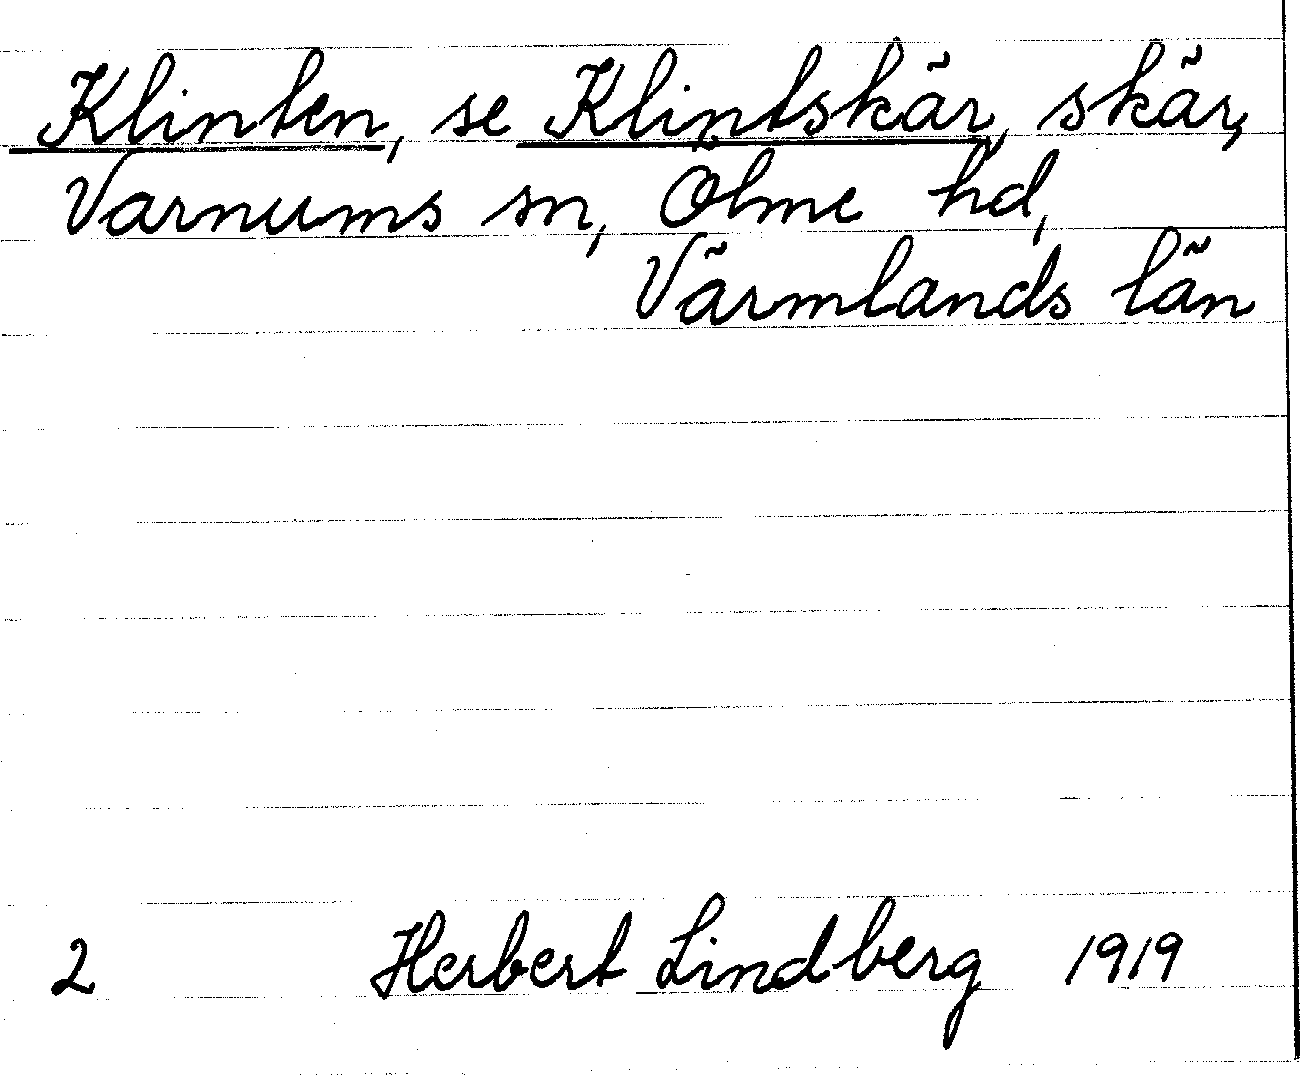 Klinten, se Klintskär, skär,
Varnums sn, Ölme hd,
Värmlands län
2 Herbert Lindberg 1919